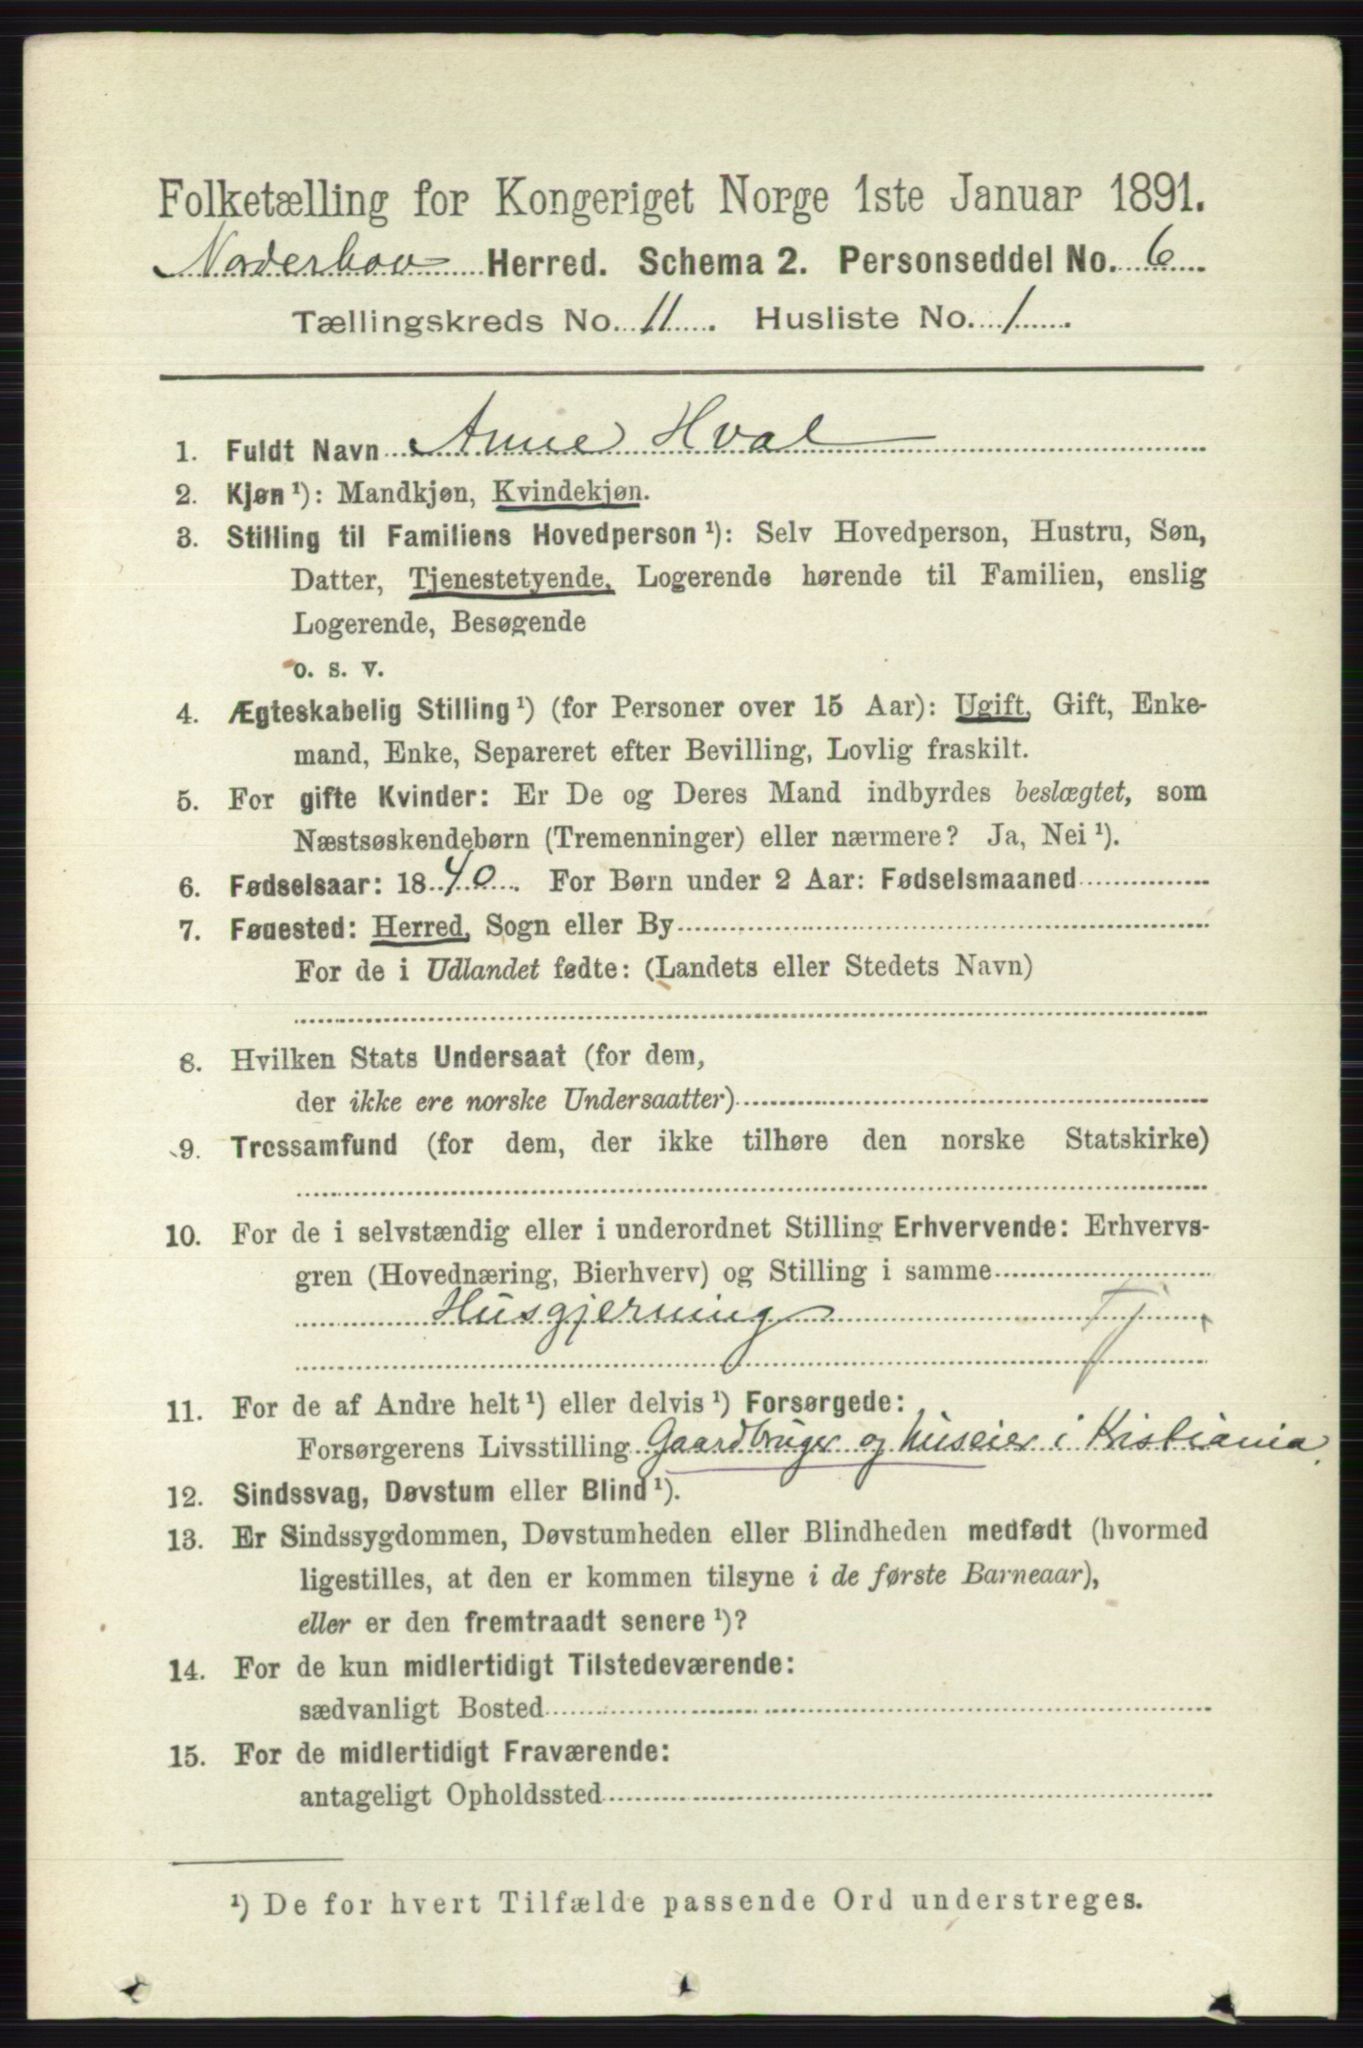 Folketælling for Kongeriget Norge 1ste Januar 1891.
Norderhov Herred. Schema 2. Personseddel No. 6
Tællingskreds No. 11. Husliste No. 1
1. Fuldt Navn Anne Hval
2. Kjøn ¹): Mandkjøn, Kvindekjøn.
3. Stilling til Familiens Hovedperson ¹): Selv Hovedperson, Hustru, Søn,
Datter, Tjenestetyende, Logerende hørende til Familien, enslig
Logerende, Besøgende
o. s. v.
4. Ægteskabelig Stilling ¹) (for Personer over 15 Aar): Ugift, Gift, Enke-
mand, Enke, Separeret efter Bevilling, Lovlig fraskilt.
5. For gifte Kvinder: Er De og Deres Mand indbyrdes beslægtet, som
Næstsøskendebørn (Tremenninger) eller nærmere? Ja, Nei ¹).
6. Fødselsaar: 1840. For Børn under 2 Aar: Fødselsmaaned
7. Føuested: Herred, Sogn eller By
For de i Udlandet fødte: (Landets eller Stedets Navn)
8. Hvilken Stats Undersaat (for dem,
der ikke ere norske Undersaatter)
9. Trossamfund (for dem, der ikke tilhøre den norske Statskirke)
10. For de i selvstændig eller i underordnet Stilling Erhvervende: Erhvervs-
gren (Hovednæring, Bierhverv) og Stilling i samme
Husgjerning Tj
11. For de af Andre helt ¹) eller delvis ¹) Forsørgede:
Forsørgerens Livsstilling Gaardbruger og huseier i Kristiania.
12. Sindssvag, Døvstum eller Blind ¹).
13. Er Sindssygdommen, Døvstumheden eller Blindheden medfødt (hvormed
ligestilles, at den er kommen tilsyne i de første Barneaar),
eller er den fremtraadt senere ¹)?
14. For de kun midlertidigt Tilstedeværende:
sædvanligt Bosted
15. For de midlertidigt Fraværende:
antageligt Opholdssted
¹) De for hvert Tilfælde passende Ord understreges.